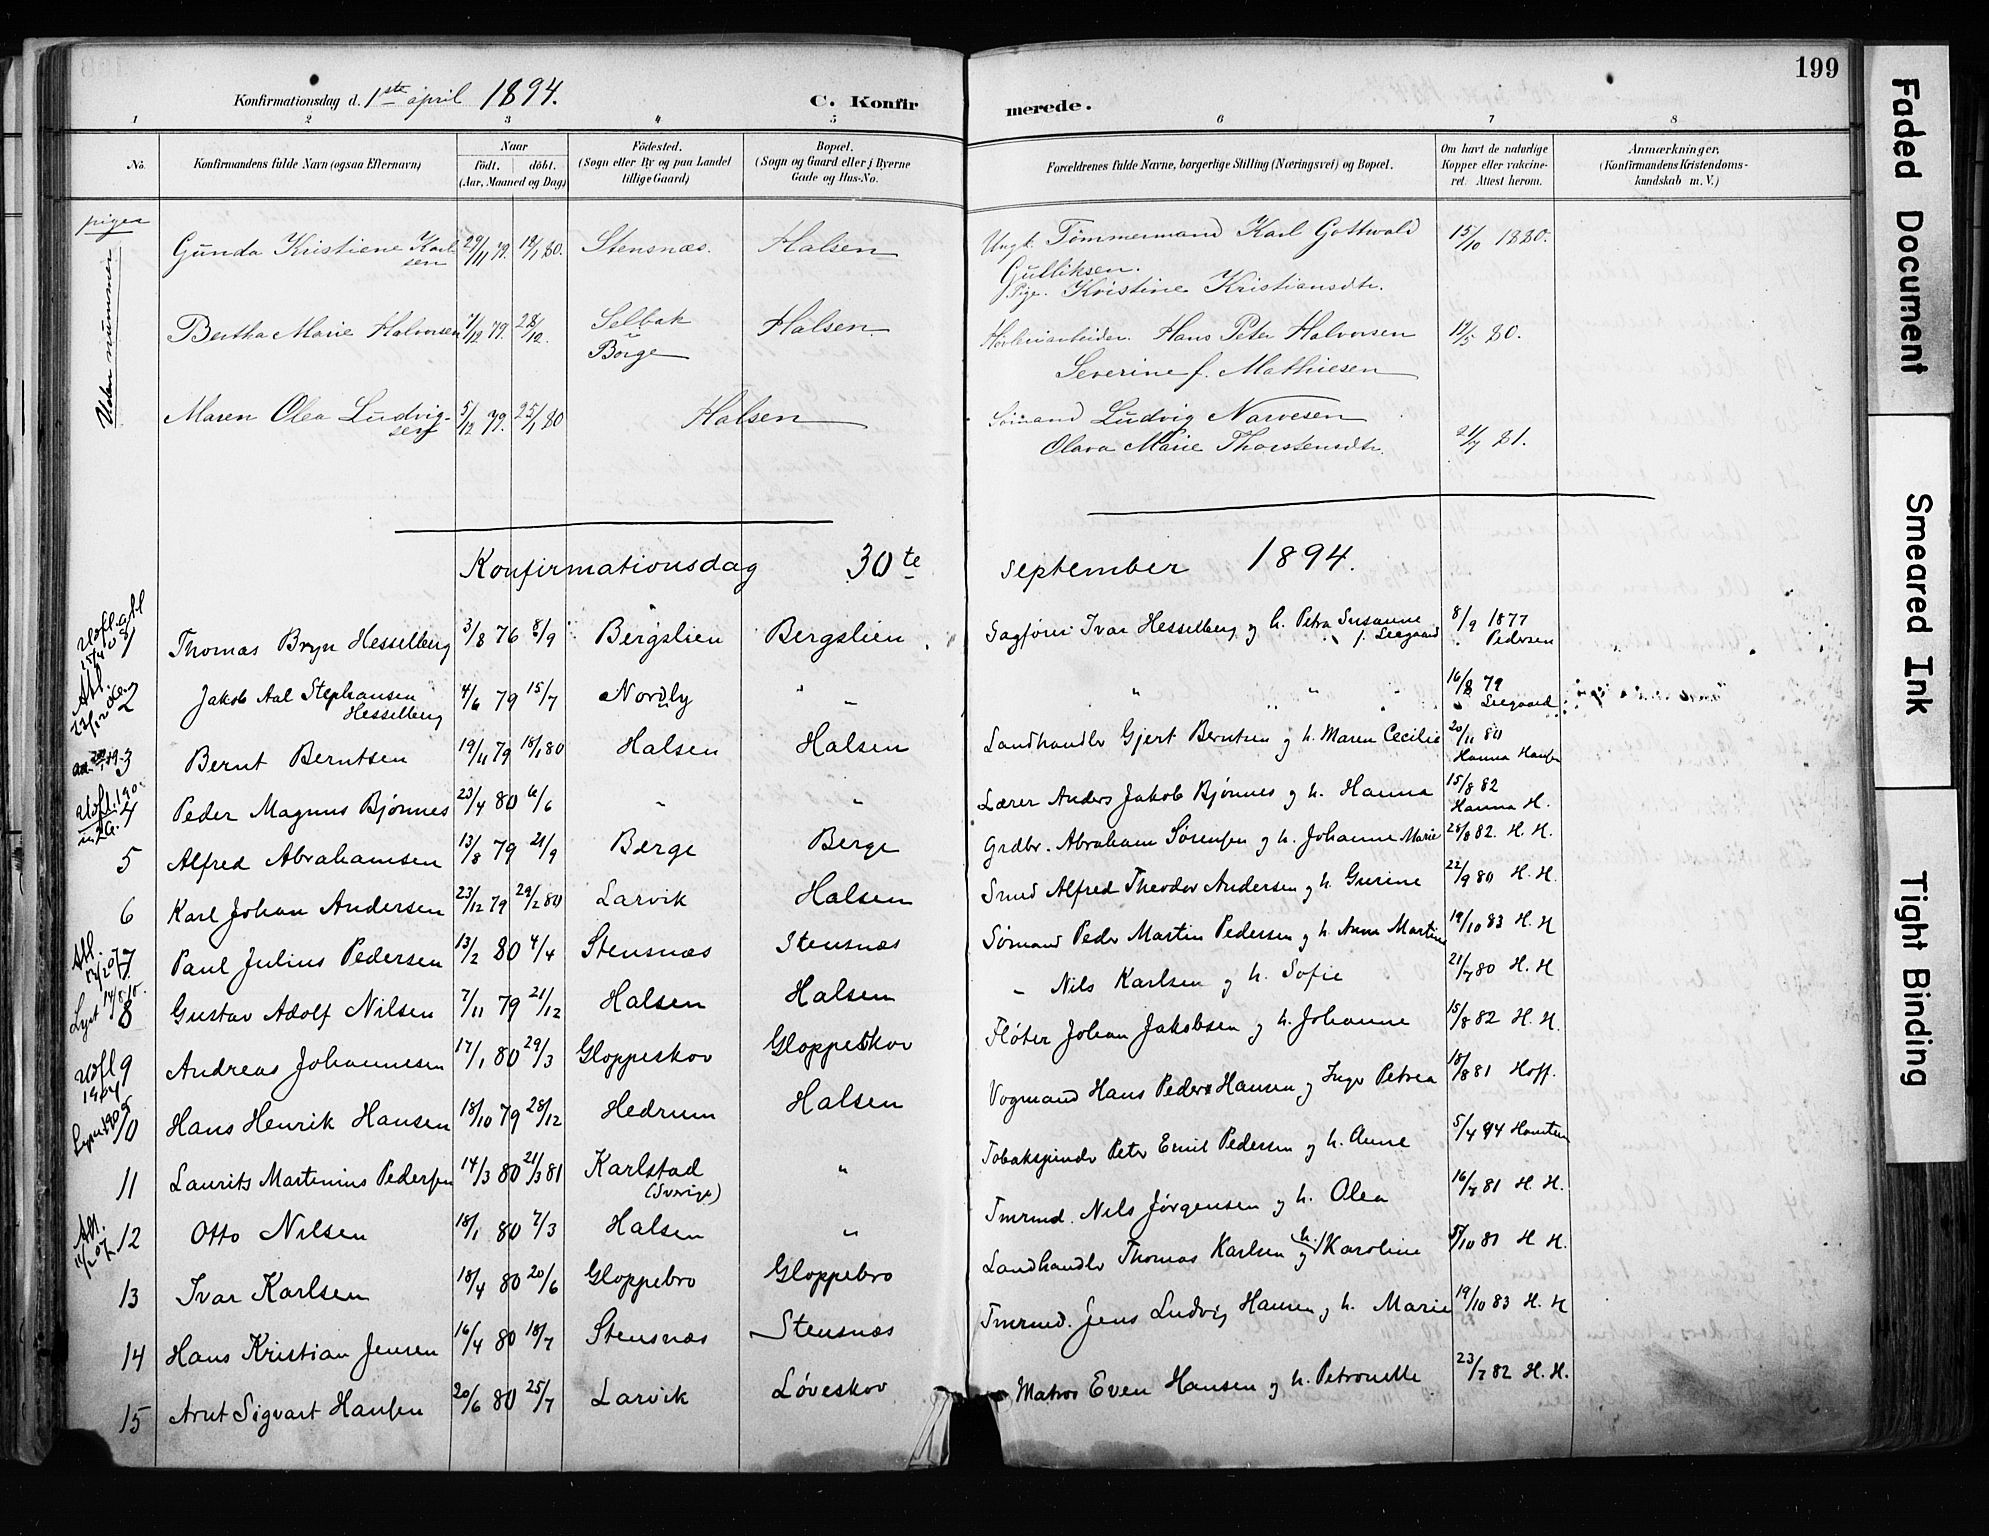 199
Konfirmationsdag d. 1ste april 1894. C. Konfirmerede.
1 2 3 4 5 6 7 8
No. Konfirmandens fulde Navn (ogsaa Efternavn) Naar født. døbt. (Aar, Maaned og Dag) Fødested. (Sogn eller By og paa Landet tillige Gaard) Bopæl. (Sogn og Gaard eller i Byerne Gade og Hus-No. Forældrenes fulde Navne, borgerlige Stilling (Næringsvei) og Bopæl. Om havt de naturlige Kopper eller vakcineret. Attest herom. Anmærkninger. (Konfirmandens Kristendomskundskab m. V.)
piger
Uden nummer
Gunda Kristiene Karlsen 29/11 79. 18/1 80. Stensnæs. Halsen Ungk. Tømmermand Karl Gottwald Gulliksen. Pige. Kristine Kristiansdtr. 15/10 1880.
Bertha Marie Halvorsen 7/12 79. 28/12. Selbak i Borge Halsen Hans Peter Halvorsen Severine f. Mathiesen 12/5 80.
Maren Olea Ludvigsen 5/12 79. 25/1 80 Halsen Sømand Ludvig Narvesen Olava Marie Thorstensdtr. 21/7 81.
Konfirmationsdag 30te september 1894.
1 Thomas Bryn Hesselberg 3/8 76 8/9 Bergslien Bergslien Sagfører Ivar Hesselberg og h. Petra Susanne f. Seegaard 8/9 1877 Pedersen
2 Jakob Aal Stephansen Hesselberg 4/6 79 15/7 Nordby " " " " 16/8 79 Seegaard
3 Bernt Berntsen 19/11 79 18/1 80 Halsen Halsen Landhandler Gjert Berntsen og h. Maren Cecilie 20/11 80 Hanna Hansen
4 Peder Magnus Bjønnes 23/4 80 6/6 " " Lærer Anders Jakob Bjønnes og h. Hanna 15/8 82 Hanna H.
5 Alfred Abrahamsen 13/8 79 21/9 Berge Berge Grdbr. Abraham Sørensen og h. Johanne Marie 28/8 82. H. H.
6 Karl Johan Andersen 23/12 79 29/2 80 Larvik Halsen Smed Alfred Theodor Andersen og h. Gurine 22/9 80 H. H.
7 Paul Julius Pedersen 13/2 80 4/4 Stensnæs Stensnæs Sømand Peder Martin Pedersen og h. Anne Martine 19/10 83 H. H
8 Gustav Adolf Nilsen 7/11 79 21/12 Halsen Halsen " Nils Karlsen og h. Sofie 21/7 80 H. H
9 Andreas Johannesen 17/1 80 29/3 Gloppeskov Gloppeskov Fløter Johan Jakobsen og h. Johanne 15/8 82 H. H.
10 Hans Henrik Hansen 18/10 79 28/12 Hedrum Halsen Vogmand Hans Peder Hansen og Inger Petrea 18/8 81 Hoff.
11 Laurits Martinius Pedersen 14/3 80 21/3 81 Karlstad (Sverige) " Tobakspinder Peter Emil Pedersen og h. Anne 5/4 94
12 Otto Nilsen 18/1 80 7/3 Halsen " Tmrmd. Nils Jørgensen og h. Olea 16/7 81 H. H.
13 Ivar Karlsen 18/4 80 20/6 Gloppebro Gloppebro Landhandler Thomas Karlsen og h. Karoline 5/10 81 H H.
14 Hans Kristian Jensen 16/4 80 18/7 Stensnæs Stensnæs Tmrmd. Jens Ludvig Hansen og h. Marie 19/10 83 H. H
15 Arnt Sigvart Hansen 20/6 80 25/7 Larvik Løveskov Matros Even Hansen og h. Petronelle 23/7 82 H. H.
Faded Document
Smeared Ink
Tight Binding